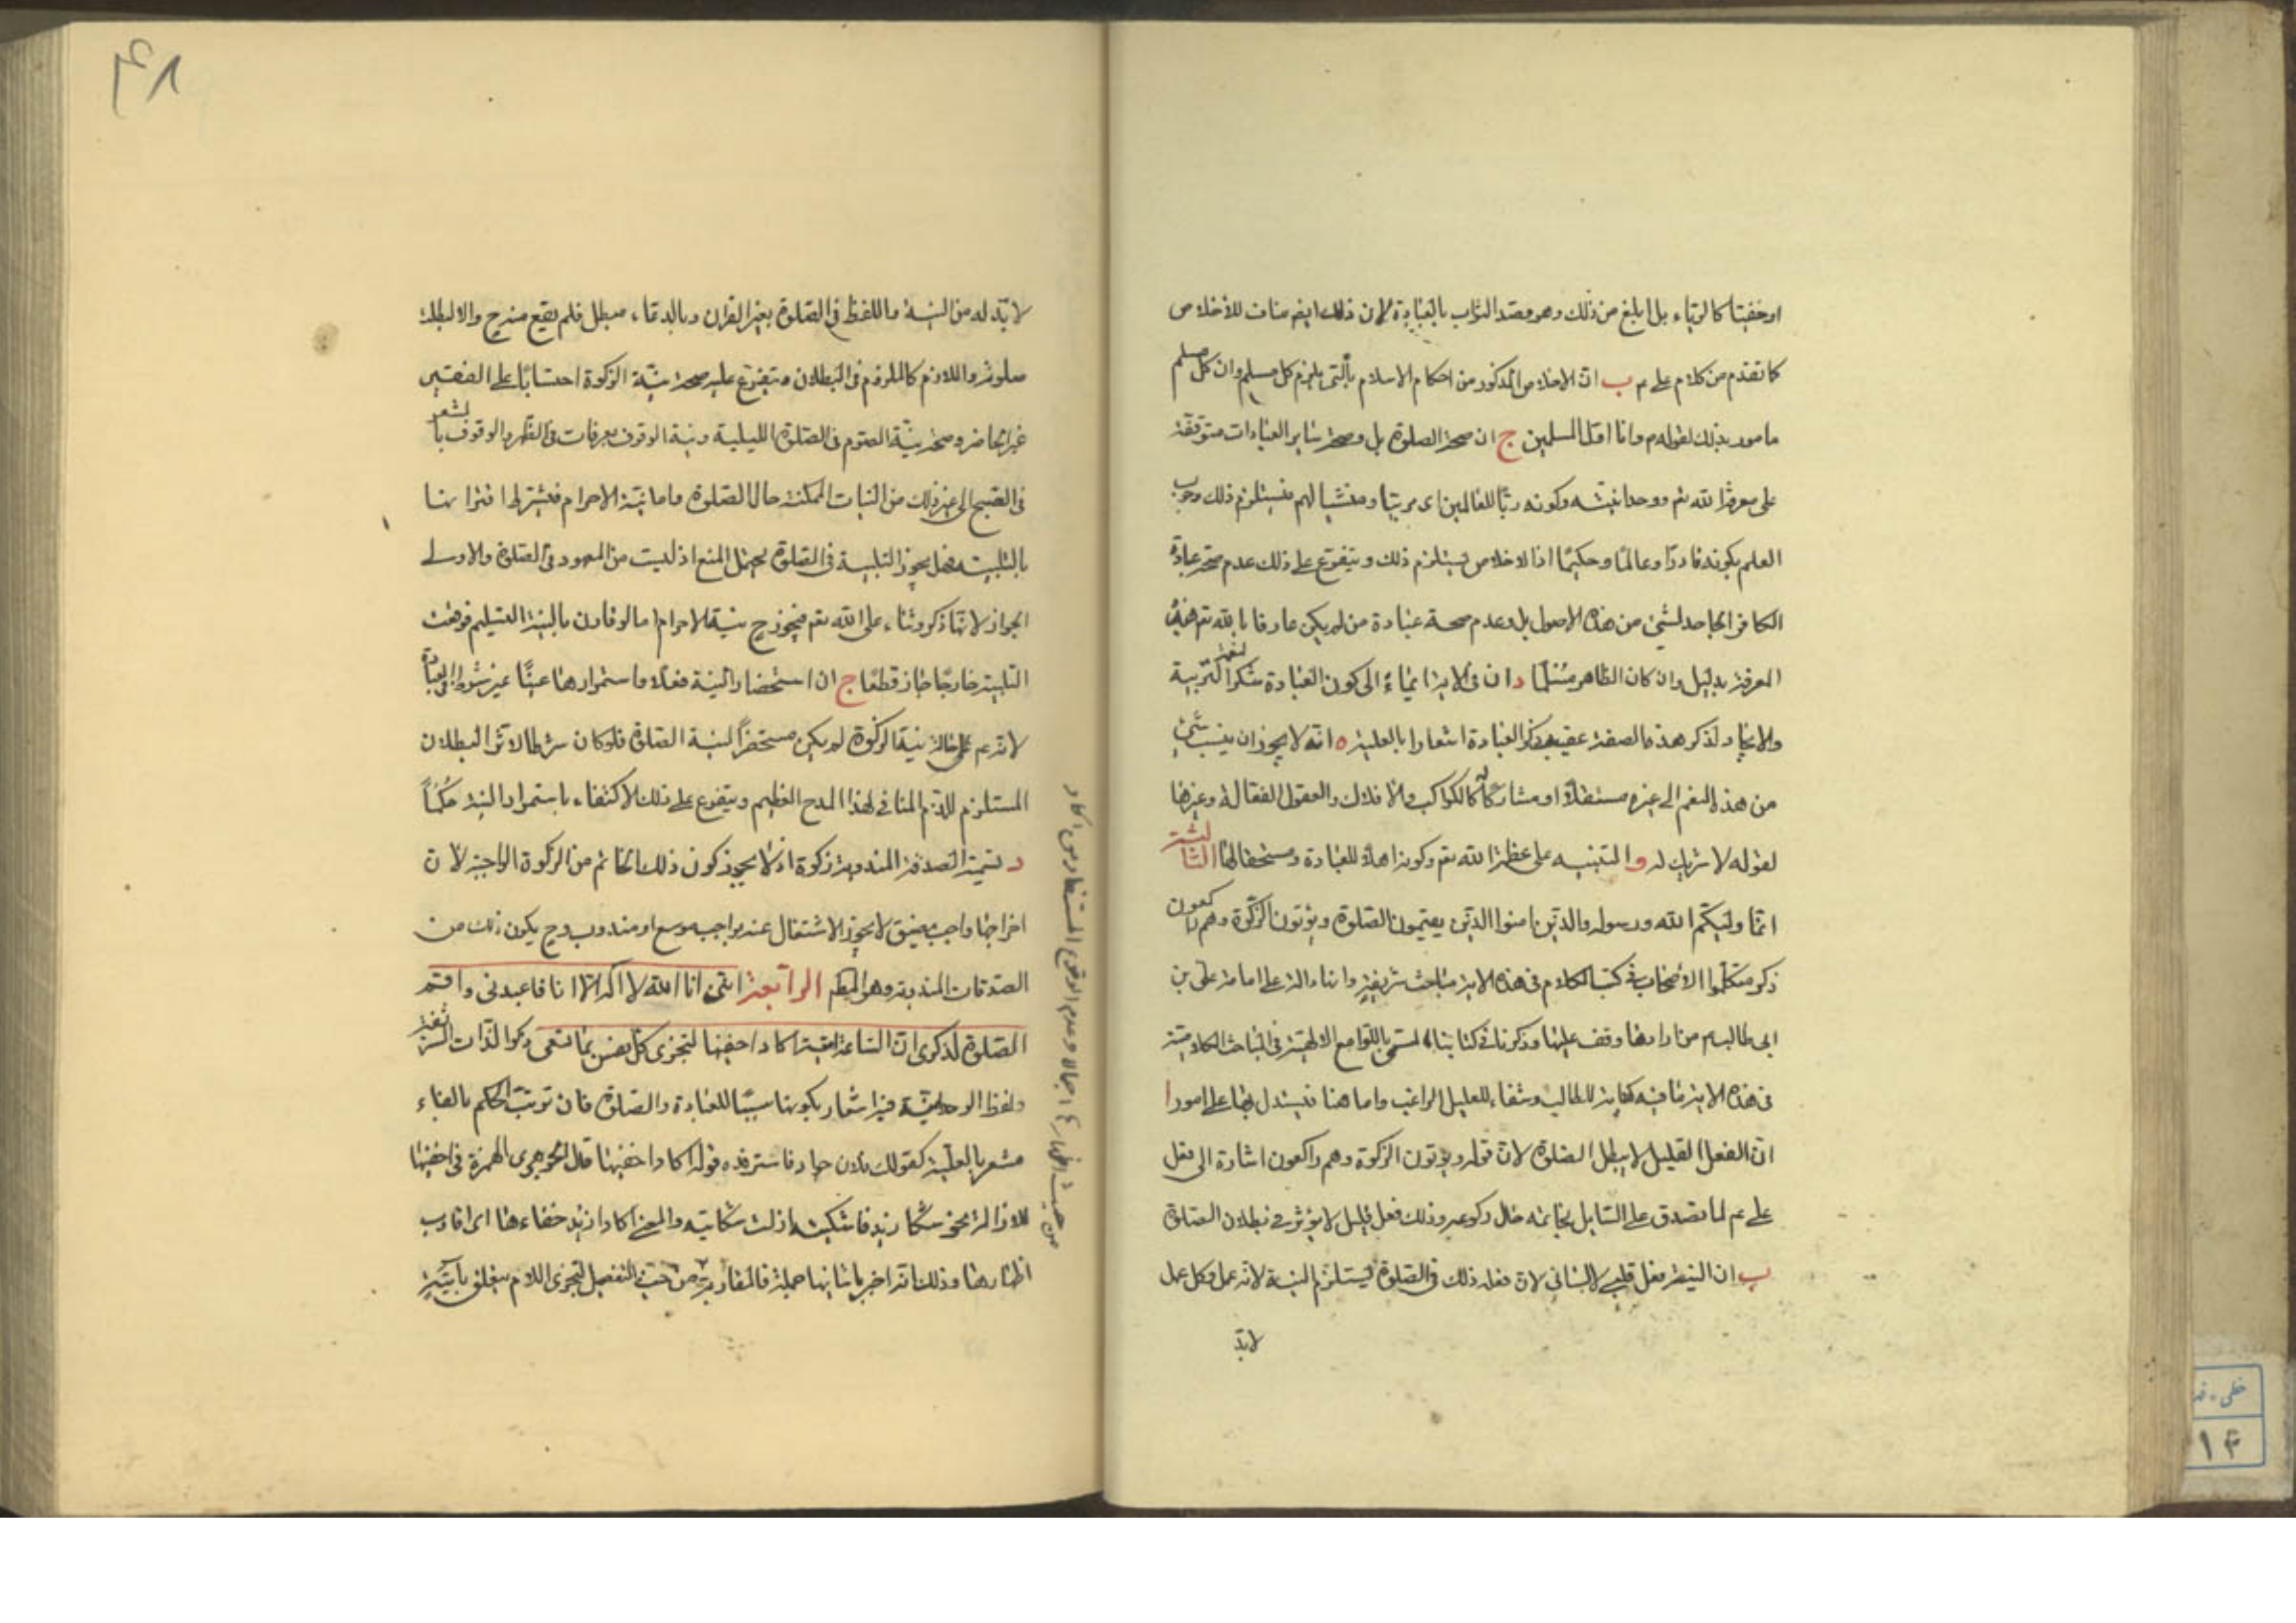 او خفيتا كالرياء بل ابلغ من ذلك وهو قصد الثواب بالعبادة لان ذلك ايضا مناف للاخلاص
كما تقدم من كلام علي عم ب ان الاخلاص المذكور من احكام الاسلام التي يلزم كل مسلم وان كل مسلم
مامور بذلك لقوله وانا اول المسلمين ج ان صحة الصلوة بل وصحة ساير العبادات متوقفة
على معرفة الله تم ووحدانيته وكونه ربا للعالمين اى مربيا ومنشيا لهم فيستلزم ذلك وجوب
العلم بكونه قادرا وعالما وحكيما اذ الاخلاص يستلزم ذلك ويتفرع على ذلك عدم صحة عبادة
الكافر الجاحد لشئ من هذه الاصول بل وعدم صحة عبادة من لم يكن عارفا بالله تم هذه
المعرفة بدليل وان كان الظاهر مسلما د ان في الاية ايماء الى كون العبادة شكرا لنعمة التربية
والايجاد لذكر هذه الصفة عقيب ذكر العبادة اشعارا بالعلية ه انه لا يجوز ان ينسب شئ
من هذه النعم الى غيره مستقلا او مشاركا كالكواكب والافلاك والعقول الفعالة وغيرها
لقوله لا شريك له و التنبيه على عظمة الله تعم وكونه اهلا للعبادة ومستحقا لها الثالثة
انما وليكم الله ورسوله والذين امنوا الذين يقيمون الصلوة ويؤتون الزكوة وهم راكعون
ذكر متكلموا الاصحاب في كتب الكلام في هذه الاية مباحث شريفة وانها دالة على امامة على بن
ابى طالب عم من ارادها وقف عليها وذكرنا في كتابنا المسمى باللوامع الالهية في المباحث الكلامية
في هذه الاية ما فيه كفاية للطالب وشفاء للعليل الراغب واما هنا فيستدل بها على امور ا
ان الفعل القليل لا يبطل الصلوة لان قوله ويؤتون الزكوة وهم راكعون اشارة الى فعل
على عم لما تصدق على السايل بخاتمه حال ركوعه وذلك فعل قليل لا يؤثر في بطلان الصلوة
ب ان النية فعل قلبي لا لساني لان فعله ذلك في الصلوة يستلزم النية لانه عمل وكل عمل
لابد
٤٨
لابد له من النية واللفظ في الصلوة بغير القران وبالدعاء مبطل فلم يقع منه ح والا لبطلت
صلوته واللازم كالملزوم في البطلان ويتفرع عليه صحة نية الزكوة احتسابا على الفقير
غير الحاضر وصحة نية الصوم في الصلوة الليلية ونية الوقوف بعرفات في الظهر والوقوف بالمشعر
في الصبح الى غير ذلك من النيات الممكنة حال الصلوة واما نية الاحرام فيشترط اقترانها
بالتلبية فهل يجوز التلبية في الصلوة يحتمل المنع اذ ليست من المعهود في الصلوة والاولى
الجواز لانها ذكر وثناء على الله تعم فيجوز ح نية الاحرام اما لو قارن بالنية التسليم فوقعت
التلبية خارجا جاز قطعا ج ان استحضار النية فعلا واستمرارها عينا غير شرط في العبادة
لانه عم حالة نية الزكوة لم يكن مستحضرا لنية الصلوة فلو كان شرطا لاثر البطلان
المستلزم للذم المنافي لهذا المدح العظيم ويتفرع على ذلك الاكتفاء باستمرار النية حكما
د تسمية الصدقة المندوبة زكوة اذ لا يجوز كون ذلك الخاتم من الزكوة الواجبة لان
اخراجها واجب مضيق لا يجوز الاشتغال عنه بواجب موسع او مندوب وح يكون ذلك من
الصدقات المندوبة وهو المطلوب الرابعة انني انا الله لا اله الا انا فاعبدني واقم
الصلوة لذكرى ان الساعة اتية اكاد اخفيها لتجزى كل نفس بما تسعى ذكر الذات الشريفة
ولفظ الوحدانية فيه اشعار بكونها سببا للعبادة والصلوة فان ترتب الحكم بالفاء
مشعر بالعلية كقولك فلان جواد فاسترفده قوله اكاد اخفيها قال الجوهرى الهمزة في اخفيها
للازالة نحو شكا زيد فاشكيته ازلت شكايته والمعنى اكاد ازيد خفاءها اى اقارب
اظهارها وذلك انه اخبر باتيانها جملة فالمقاربة من حيث التفصيل لتجزى اللام متعلق باتية
من حيث اظهارها اجمالا وعدم الوقوع المستفاد من اكاد
خطى
١٣